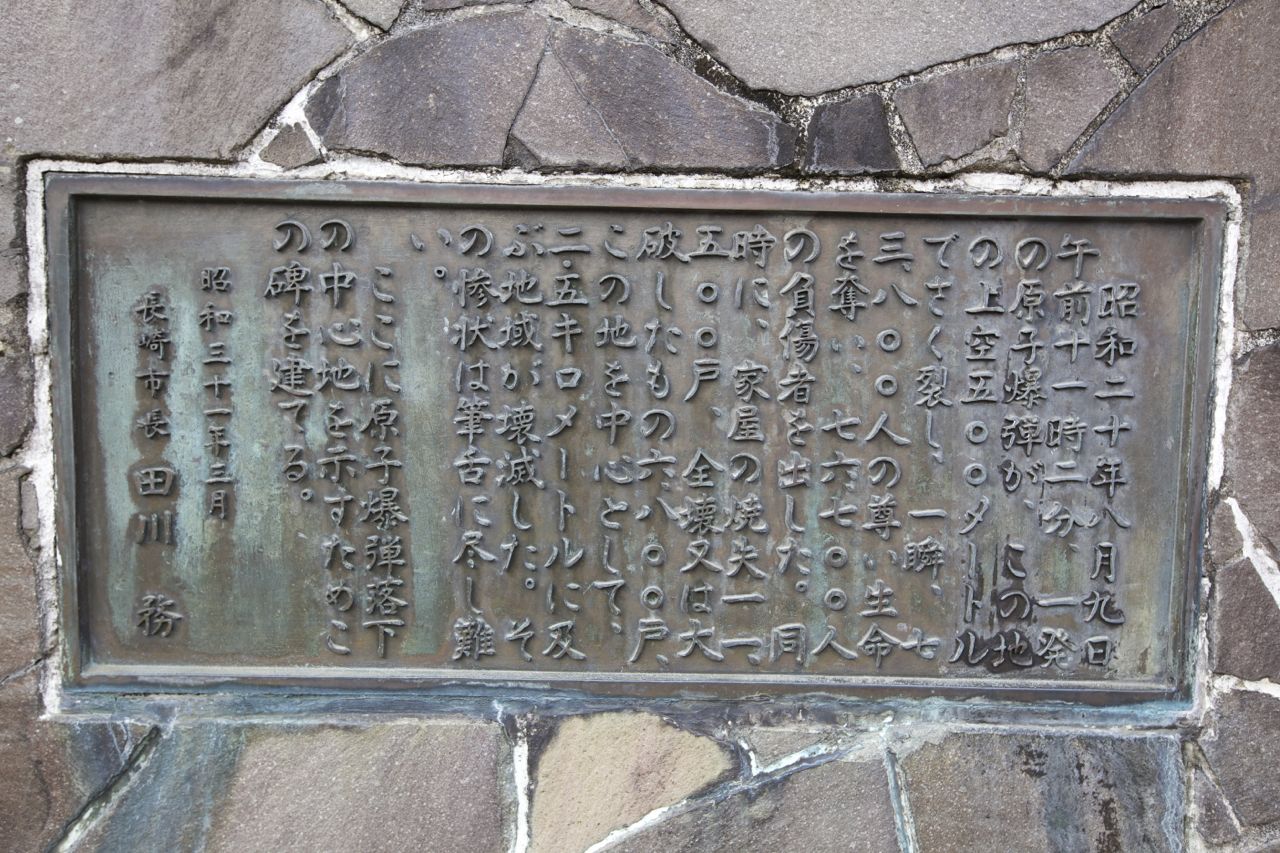 昭和二十年八月九日
午前十一時二分、一発
の原子爆弾が、この地
の上空五〇〇メートル
でさく裂し、一瞬、七
三、八〇〇人の尊い生命
を奪い、七六七〇〇人
の負傷者を出した。同
時に、家屋の焼失一一、
五〇〇戸、全壊又は大
破したもの六八〇〇戸、
この地を中心として、
二・五キロメートルに及
ぶ地域が壊滅した。そ
の惨状は筆舌に尽し難
い。
ここに原子爆弾落下
の中心地を示すためこ
の碑を建てる。
昭和三十一年三月
長崎市長 田川 務